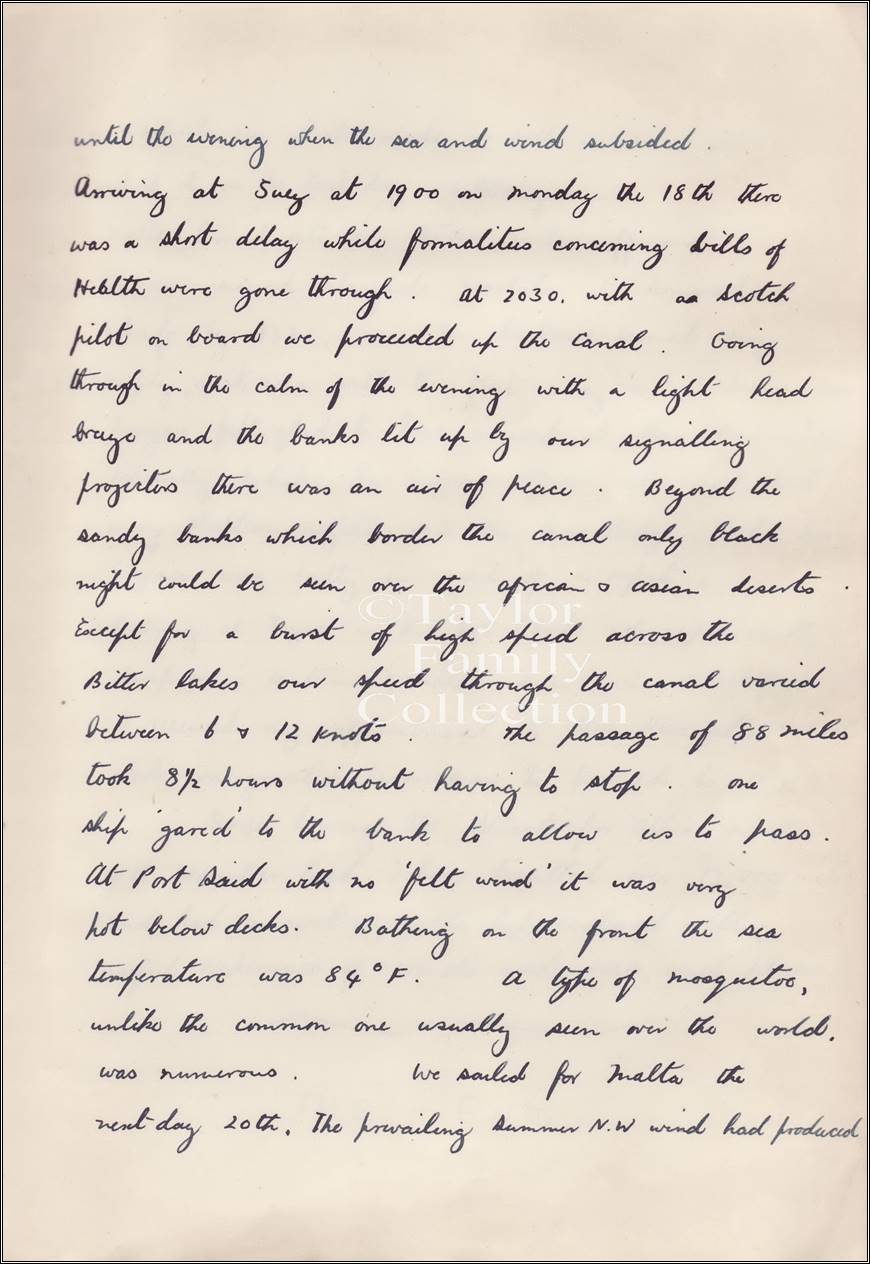 until the evening when the sea and wind subsided .
Arriving at Suez at 1900 on Monday the 18th there
was a short delay while formalities concerning bills of
Health were gone through . at 2030. with a Scotch
pilot on board we proceeded up the Canal . Going
through in the calm of the evening with a light head
breeze and the banks lit up by our signalling
projectors there was an air of peace . Beyond the
sandy banks which border the canal only black
night could be seen over the african & asian deserts .
Except for a burst of high speed across the
Bitter Lakes our speed through the canal varied
between 6 & 12 knots . The passage of 88 miles
took 8½ hours without having to stop . one
ship 'gared' to the bank to allow us to pass .
At Port Said with no 'felt wind' it was very
hot below decks. Bathing on the front the sea
temperature was 84°F. A type of mosquitoe,
unlike the common one usually seen over the world,
was numerous . We sailed for Malta the
next day 20th. The prevailing summer N.W wind had produced
©Taylor
Family
Collection